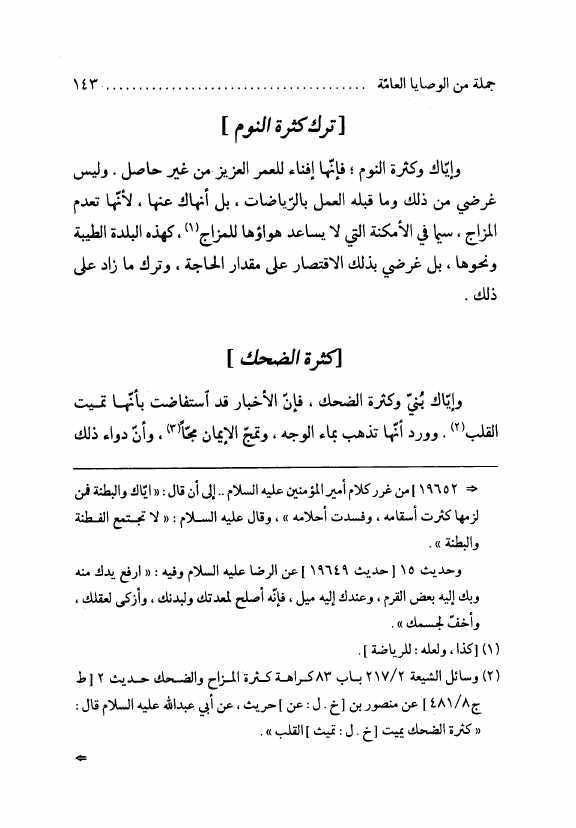 جملة من الوصايا العامّة ........................................ ١٤٣
[ ترك كثرة النوم ]
وإيّاك وكثرة النوم ؛ فإنّها إفناء للعمر العزيز من غير حاصل . وليس
غرضي من ذلك وما قبله العمل بالرّياضات ، بل أنهاك عنها ، لأنّها تعدم
المزاج ، سيما في الأمكنة التي لا يساعد هواؤها للمزاج(١) ، كهذه البلدة الطيبة
ونحوها ، بل غرضي بذلك الاقتصار على مقدار الحاجة ، وترك ما زاد على
ذلك .
[ كثرة الضحك ]
وإيّاك بُنيّ وكثرة الضحك ، فإنّ الأخبار قد استفاضت بأنّهـا تمـيت
القلب(٢) . وورد أنّها تذهب بماء الوجه ، وتمجّ الإيمان مجّاً(٣) ، وأنّ دواء ذلك
⇒ ١٩٦٥٢ ] من غرر كلام أمير المؤمنين عليه السلام .. إلى أن قال : « ايّاك والبطنة فمن
لزمها كثرت أسقامه ، وفسدت أحلامه » ، وقال عليه السـلام : « لا تجـتمع الفـطنة
والبطنة » .
وحديث ١٥ [ حديث ١٩٦٤٩ ] عن الرضا عليه السلام وفيه : « ارفع يدك منه
وبك إليه بعض القرم ، وعندك إليه ميل ، فإنّه أصلح لمعدتك ولبدنك ، وأزكى لعقلك ،
وأخفّ لجسمك » .
(١) [ كذا ، ولعله : للرياضة ] .
(٢) وسائل الشيعة ٢١٧/٢ بـاب ٨٣ كـراهـة كـثرة المـزاح والضحك حـديث ٢ [ ط
ج ٤٨١/٨ ] عن منصور بن [ خ . ل : عن ] حريث ، عن أبي عبدالله عليه السلام قال :
« كثرة الضحك يميت [ خ . ل : تميت ] القلب » .
⇐